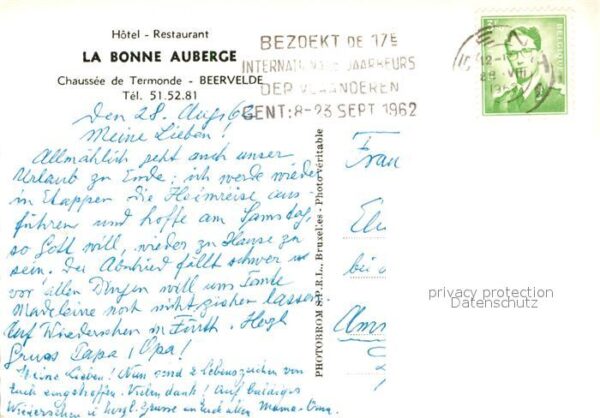 Hôtel - Restaurant
LA BONNE AUBERGE
Chaussée de Termonde - BEERVELDE
Tél. 51.52.81
BEZOEKT DE 17E
INTERNATIONALE JAARBEURS
DER VLAANDEREN
GENT: 8-23 SEPT 1962
BELGIQUE
den 28. Aug. 62
Meine Lieben!
Allmählich geht auch unser
Urlaub zu Ende; ich werde wieder
in Etappen die Heimreise aus
führen und hoffe am Samstag,
so Gott will, wieder zu Hause zu
sein. Der Abschied fällt schwer
vor allen Dingen will uns Tante
Madeleine noch nicht ziehen lassen.
Auf Wiedersehen in Fürth. Herzl
Gruss Papa, Opa!
Meine Lieben! Nun sind 2 Lebenszeichen von
Euch eingetroffen. Vielen Dank! Auf baldiges
Wiedersehen u herzl. Grüsse an Euch allen Mama-Oma.
PHOTOBROM S.P.R.L., Bruxelles - Photo véritable
Frau
bei
privacy protection
Datenschutz